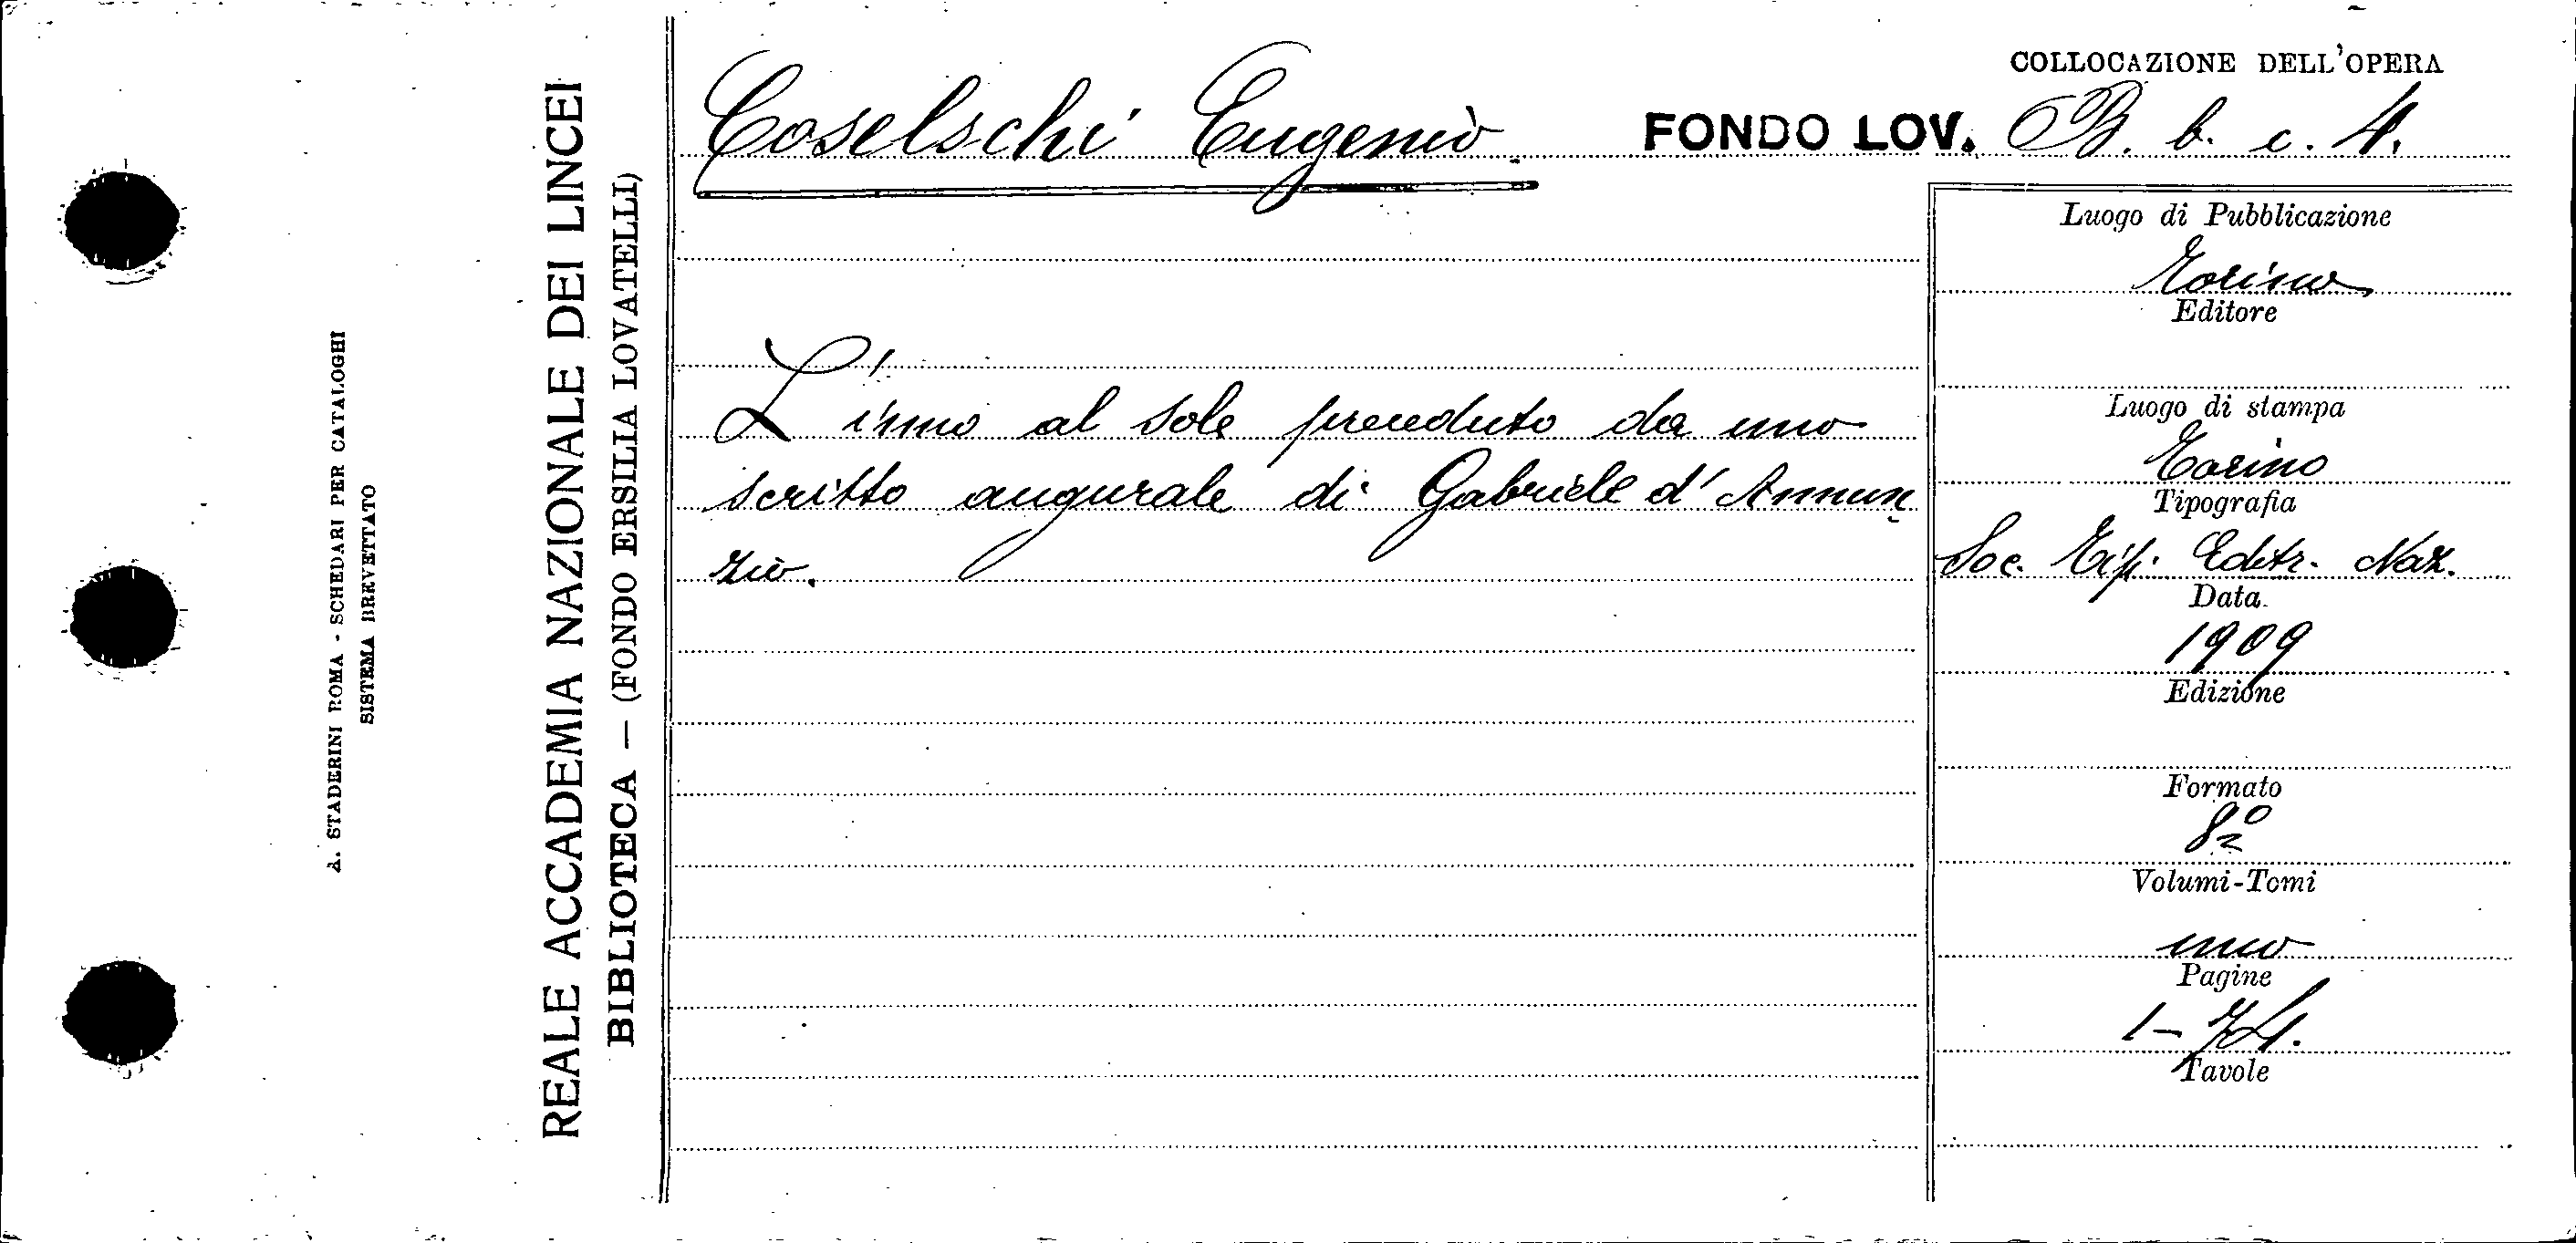 A. STADERINI ROMA - SCHEDARI PER CATALOGHI
SISTEMA BREVETTATO
REALE ACCADEMIA NAZIONALE DEI LINCEI
BIBLIOTECA — (FONDO ERSILIA LOVATELLI)
COLLOCAZIONE DELL'OPERA
Coselschi Eugenio. FONDO LOV. B. b. c. 4.
L'inno al sole preceduto da uno
scritto augurale di Gabriele d'Annun
zio.
Luogo di Pubblicazione
Torino
Editore
Luogo di stampa
Torino
Tipografia
Soc. Tip. Editr. Naz.
Data
1909
Edizione
Formato
8º
Volumi-Tomi
uno
Pagine
1-74.
Tavole